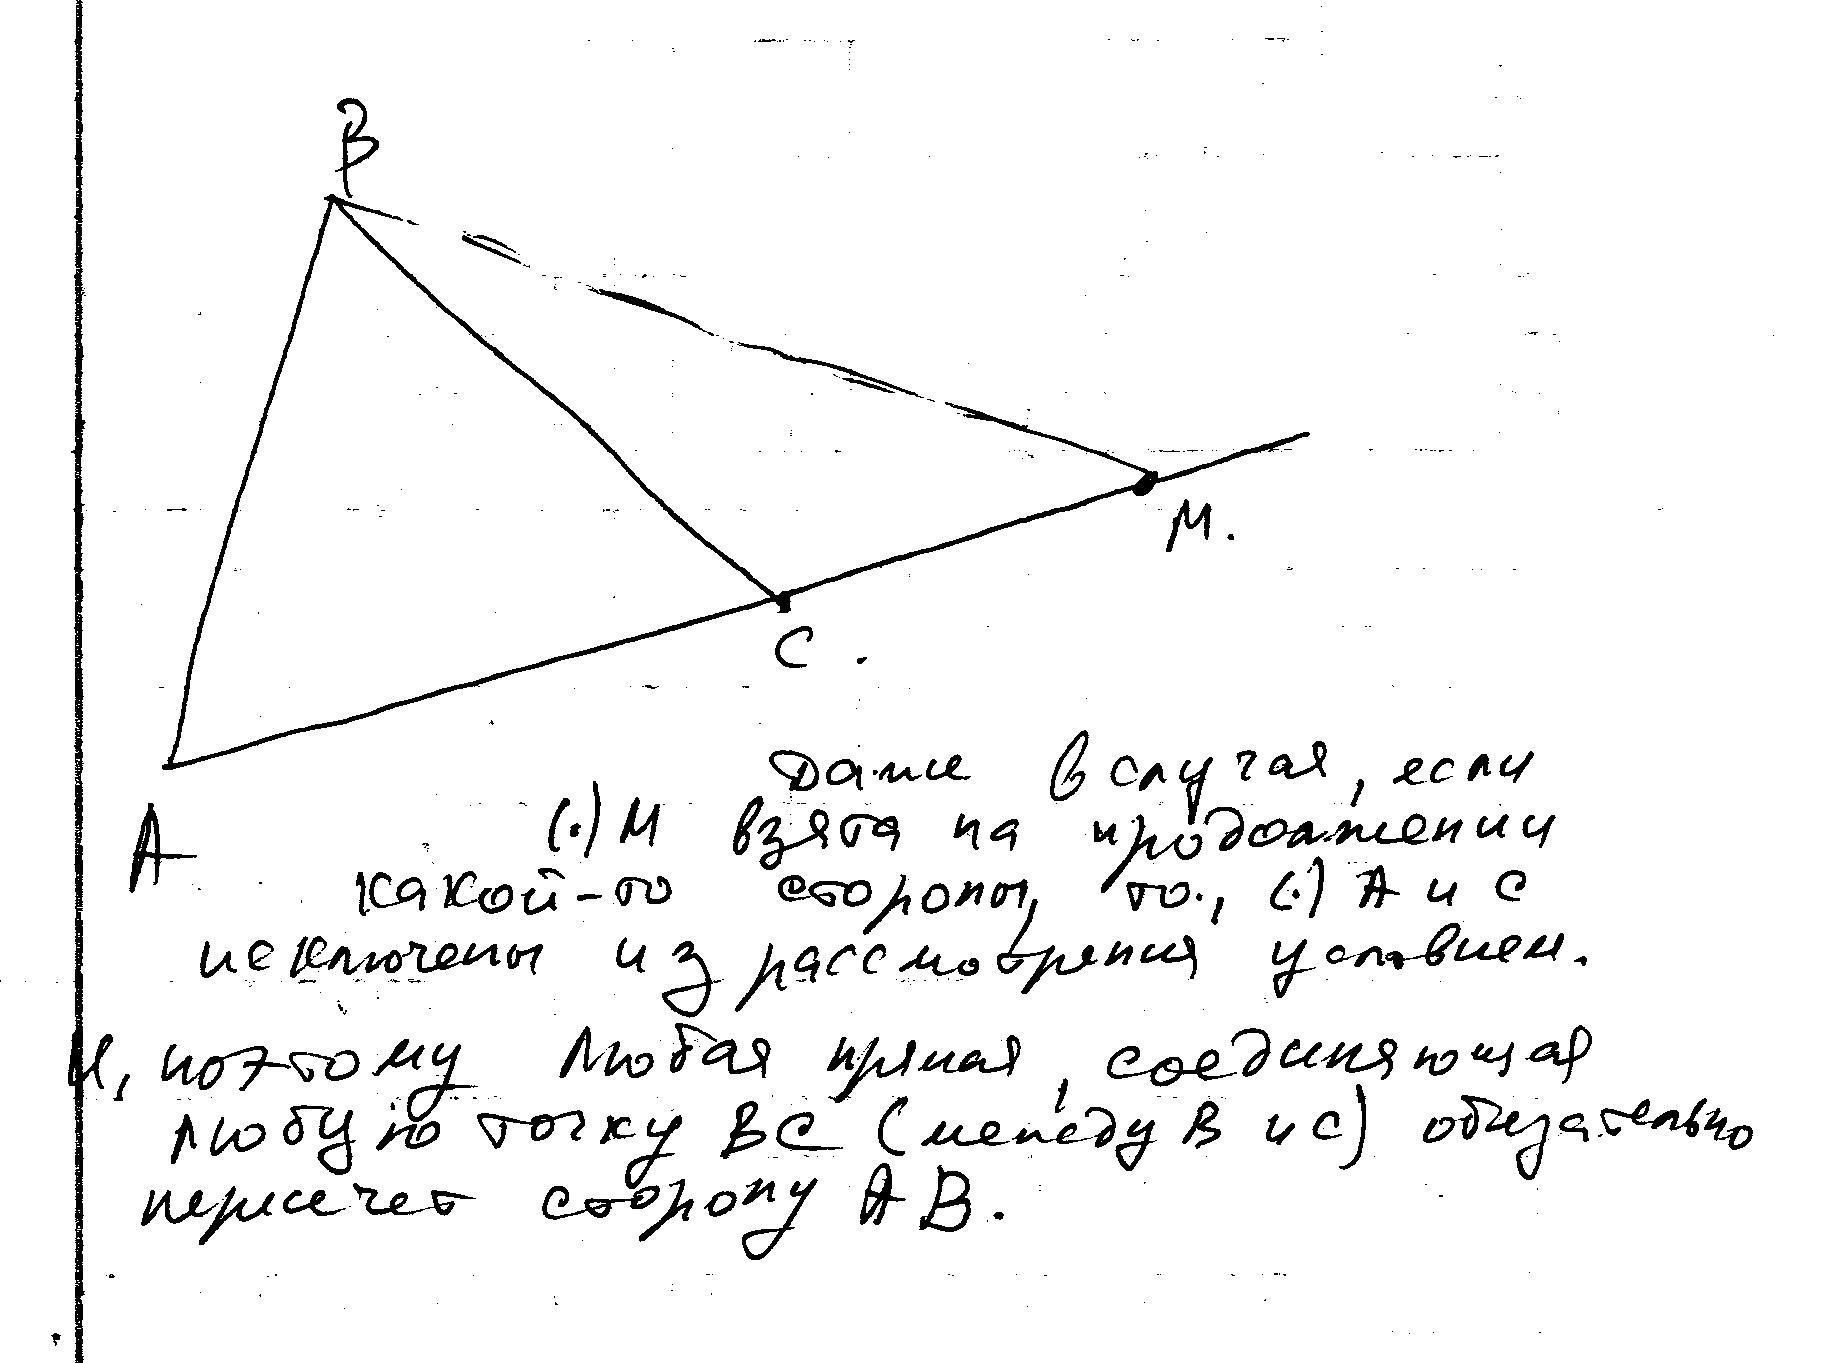 B
M.
C.
A
Даже в случая, если
(.) М взята на продолжении
какой-то стороны, то., (.) А и С
исключены из рассмотрения условием.
И, поэтому любая прямая, соединяющая
любую точку ВС (между В и С) обязательно
пересечет сторону АВ.